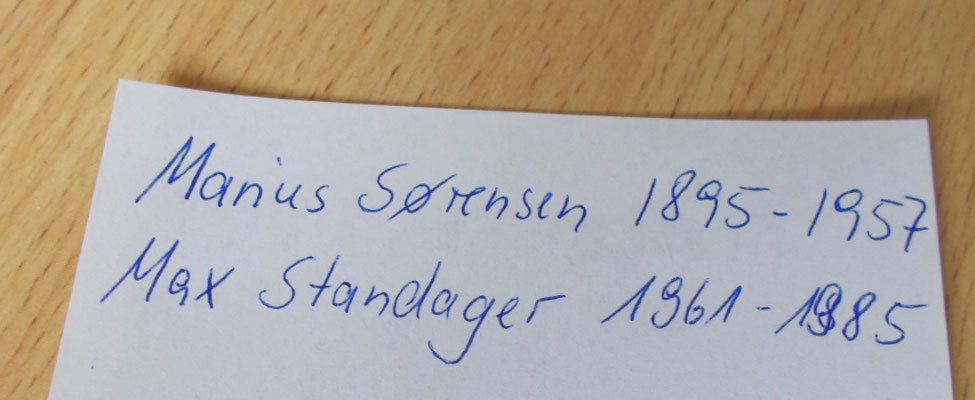 Marius Sørensen 1895-1957
Max Standager 1961-1985